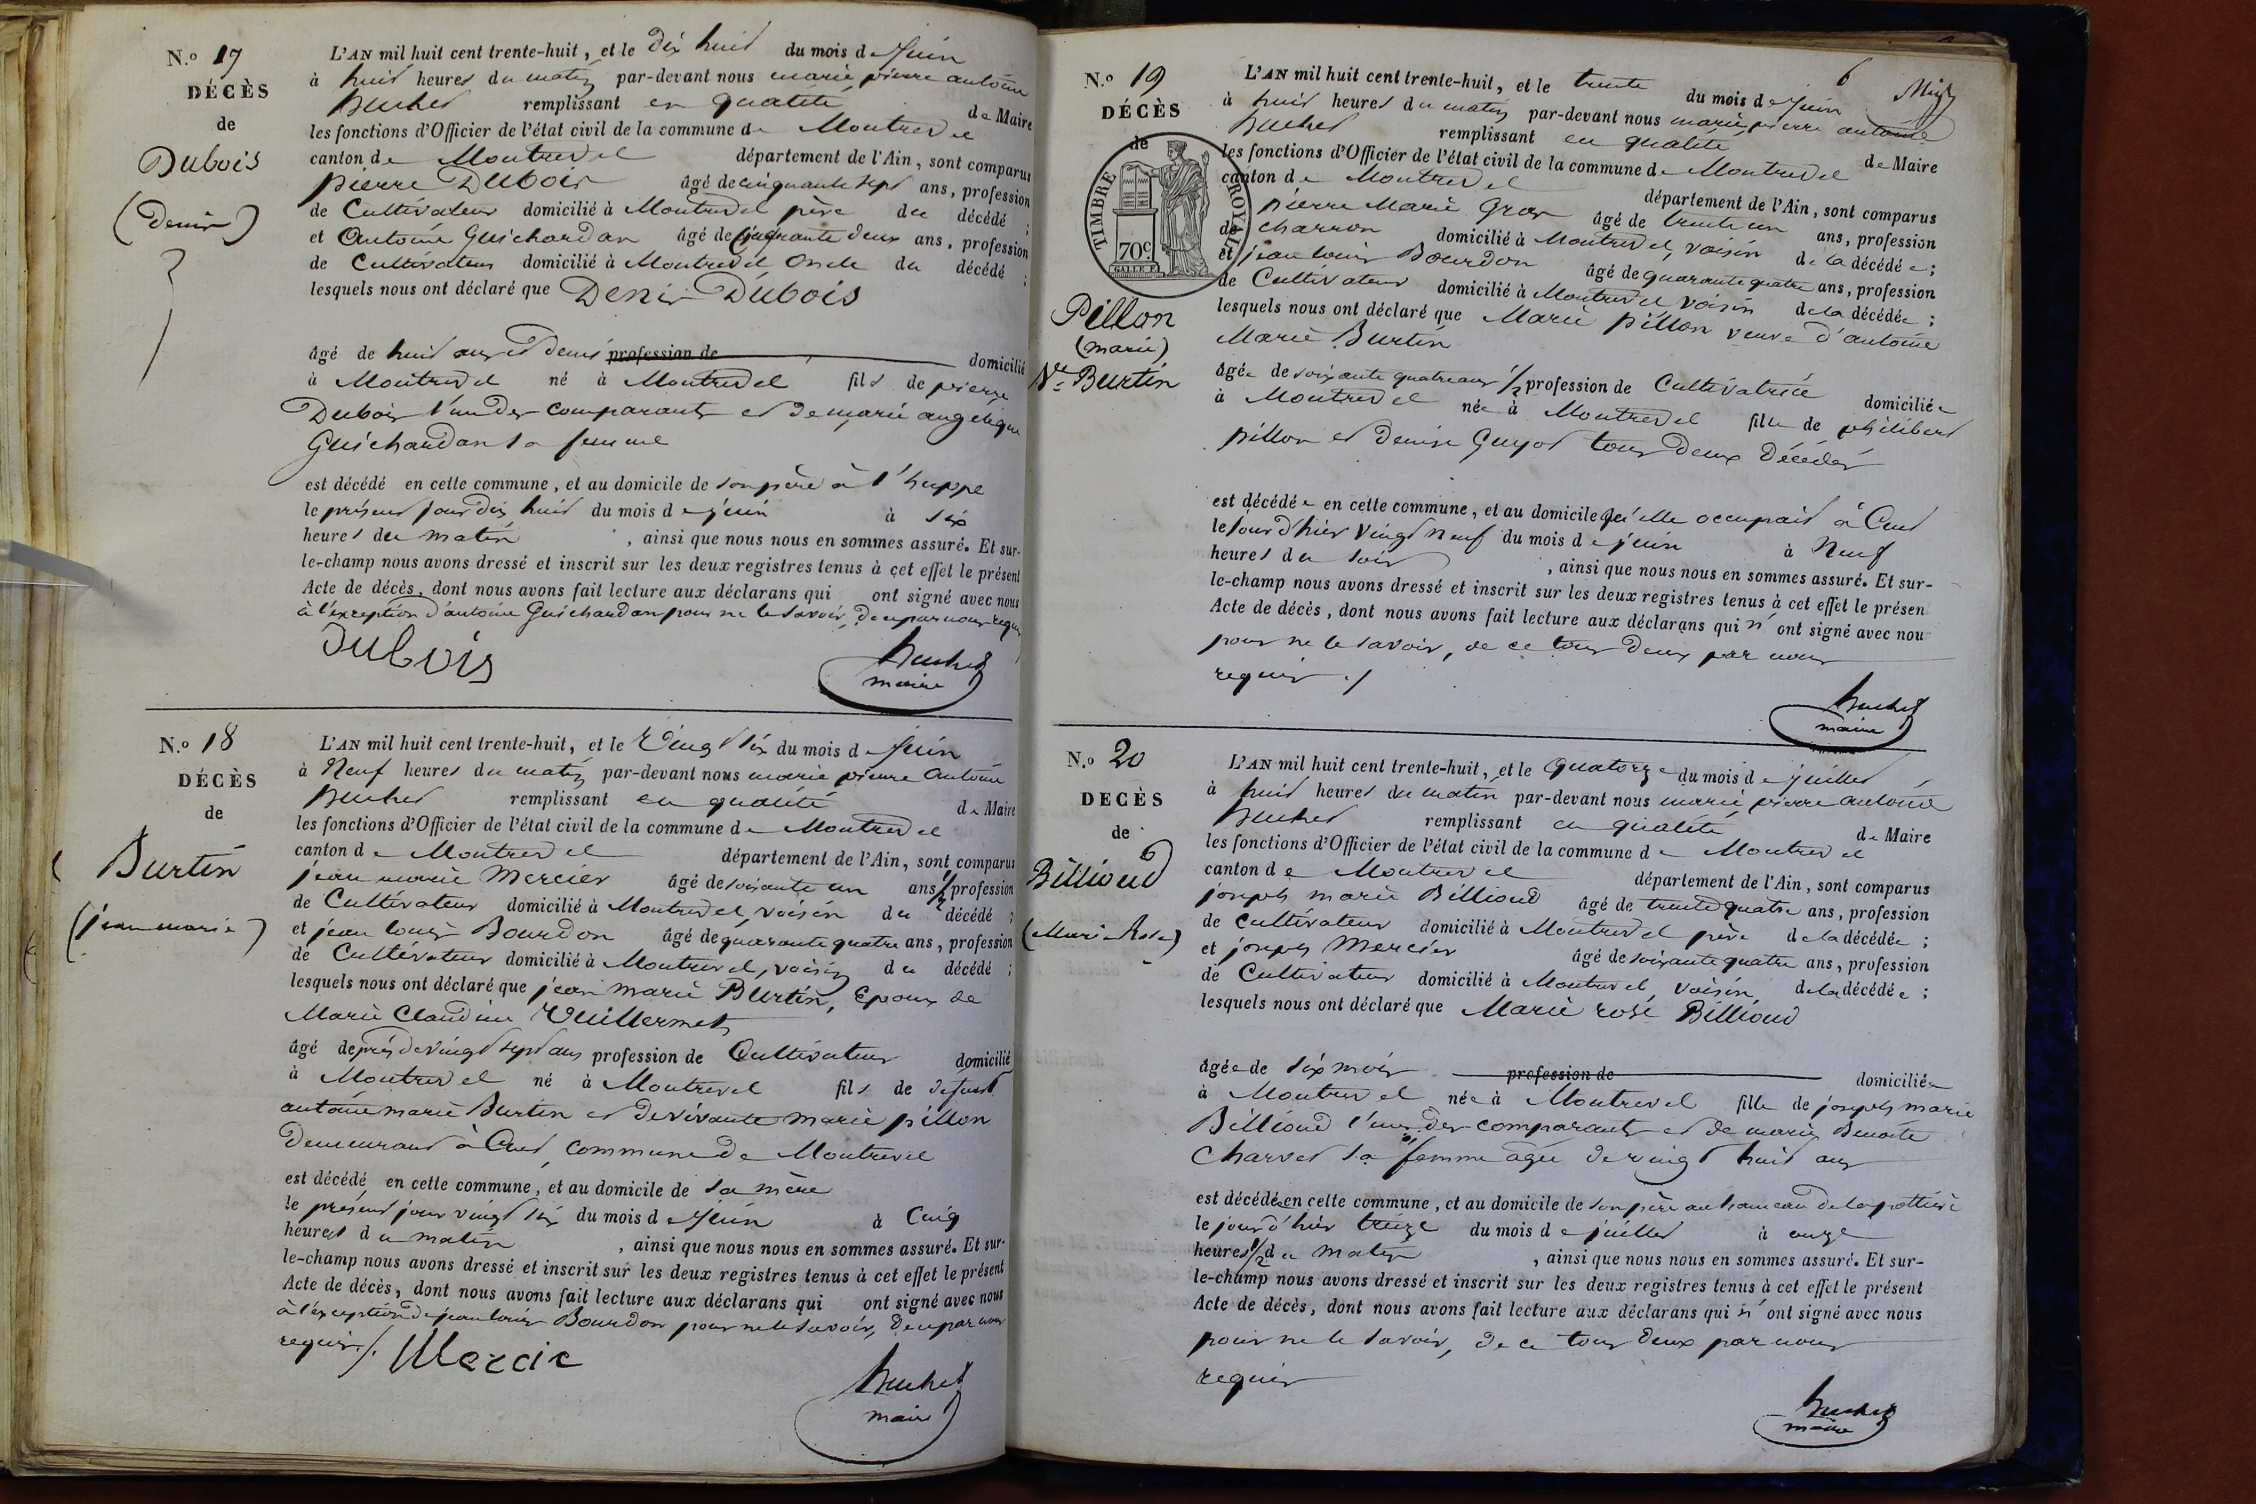 N.º 17
DÉCÈS
de
Dubois
(Denis)
L'AN mil huit cent trente-huit, et le Dix huit du mois de Juin
à huit heures du matin par-devant nous marie pierre antoine
Buchet remplissant en qualité de Maire
les fonctions d'Officier de l'état civil de la commune de Montrevel
canton de Montrevel département de l'Ain, sont comparus
pierre Dubois âgé de cinquante sept ans, profession
de Cultivateur domicilié à Montrevel père du décédé ;
et Antoine Guichardan âgé de cinquante deux ans, profession
de Cultivateur domicilié à Montrevel Oncle du décédé ;
lesquels nous ont déclaré que Denis Dubois
âgé de huit ans et demi profession de domicilié
à Montrevel né à Montrevel fils de pierre
Dubois l'un des comparants et de marie angelique
Guichardan sa femme
est décédé en cette commune, et au domicile de son père à l'huppe
le présent jour dix huit du mois de juin à six
heures du matin, ainsi que nous nous en sommes assuré. Et sur-
le-champ nous avons dressé et inscrit sur les deux registres tenus à cet effet le présent
Acte de décès, dont nous avons fait lecture aux déclarans qui ont signé avec nous
à l'exception d'antoine Guichardan pour ne le savoir, de ce par nous requis
Dubois
Buchet
maire
N.º 18
DÉCÈS
de
Burtin
(jean marie)
L'AN mil huit cent trente-huit, et le Vingt six du mois de Juin
à Neuf heures du matin par-devant nous marie pierre Antoine
Buchet remplissant en qualité de Maire
les fonctions d'Officier de l'état civil de la commune de Montrevel
canton de Montrevel département de l'Ain, sont comparus
jean marie Mercier âgé de soixante un ans 1/2 profession
de Cultivateur domicilié à Montrevel, voisin du décédé ;
et jean louis Bourdon âgé de quarante quatre ans, profession
de Cultivateur domicilié à Montrevel, voisin du décédé ;
lesquels nous ont déclaré que jean marie Burtin, Epoux de
Marie Claudine Vuillermet
âgé de près de vingt sept ans profession de Cultivateur domicilié
à Montrevel né à Montrevel fils de defunt
antoine marie Burtin et de vivante marie pillon
Demeurant à Cuet, commune de Montrevel
est décédé en cette commune, et au domicile de sa mère
le présent jour vingt six du mois de Juin à Cinq
heures du matin, ainsi que nous nous en sommes assuré. Et sur-
le-champ nous avons dressé et inscrit sur les deux registres tenus à cet effet le présent
Acte de décès, dont nous avons fait lecture aux déclarans qui ont signé avec nous
à l'exception de jean louis Bourdon pour ne le savoir, de ce par nous
requis ./.
Mercie
Buchet
maire
6
N.º 19
DÉCÈS
de
TIMBRE ROYAL
70 c.
Pillon
(marie)
Ve Burtin
L'AN mil huit cent trente-huit, et le trente du mois de Juin
à huit heures du matin par-devant nous marie pierre antoine
Buchet remplissant en qualité de Maire
les fonctions d'Officier de l'état civil de la commune de Montrevel
canton de Montrevel département de l'Ain, sont comparus
pierre Marie Gros âgé de trente un ans, profession
de charron domicilié à Montrevel, voisin de la décédée ;
et jean louis Bourdon âgé de quarante quatre ans, profession
de Cultivateur domicilié à Montrevel voisin de la décédée ;
lesquels nous ont déclaré que Marie pillon veuve d'antoine
Marie Burtin
âgée de soixante quatre ans 1/2 profession de Cultivatrice domiciliée
à Montrevel née à Montrevel fille de philibert
pillon et denise Guyot tous deux Décédés
est décédée en cette commune, et au domicile qu'elle occupait à Cuet
le jour d'hier vingt neuf du mois de juin à Neuf
heures du soir, ainsi que nous nous en sommes assuré. Et sur-
le-champ nous avons dressé et inscrit sur les deux registres tenus à cet effet le présen
Acte de décès, dont nous avons fait lecture aux déclarans qui n'ont signé avec nou
pour ne le savoir, de ce tous deux par nous
requis ./
Buchet
maire
N.º 20
DÉCÈS
de
Billioud
(Marie Rose)
L'AN mil huit cent trente-huit, et le quatorze du mois de juillet
à huit heures du matin par-devant nous marie pierre antoine
Buchet remplissant en qualité de Maire
les fonctions d'Officier de l'état civil de la commune de Montrevel
canton de Montrevel département de l'Ain, sont comparus
joseph marie Billioud âgé de trente quatre ans, profession
de cultivateur domicilié à Montrevel père de la décédée ;
et joseph Mercier âgé de soixante quatre ans, profession
de Cultivateur domicilié à Montrevel, voisin, de la décédée ;
lesquels nous ont déclaré que Marie rose Billioud
âgée de six mois profession de domiciliée
à Montrevel née à Montrevel fille de joseph marie
Billioud l'un des comparants et de marie Benoite
Charvet sa femme âgée de vingt huit ans
est décédée en cette commune, et au domicile de son père au hameau de la pottiere
le jour d'hier treize du mois de juillet à onze
heures 1/2 du matin, ainsi que nous nous en sommes assuré. Et sur-
le-champ nous avons dressé et inscrit sur les deux registres tenus à cet effet le présent
Acte de décès, dont nous avons fait lecture aux déclarans qui n'ont signé avec nous
pour ne le savoir, de ce tous deux par nous
requis
Buchet
maire